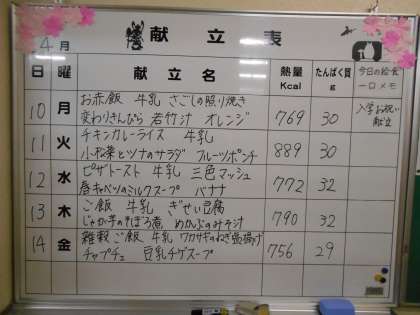 献立表
4月
日 曜 献立名 熱量 Kcal たんぱく質 g 今日の給食一口メモ
10 月 お赤飯 牛乳 さごしの照り焼き
変わりきんぴら 若竹汁 オレンジ 769 30 入学お祝い献立
11 火 チキンカレーライス 牛乳
小松菜とツナのサラダ フルーツポンチ 889 30
12 水 ピザトースト 牛乳 三色マッシュ
春キャベツのミルクスープ バナナ 772 32
13 木 ご飯 牛乳 ぎせい豆腐
じゃが芋のそぼろ煮 めかぶのみそ汁 790 32
14 金 雑穀ご飯 牛乳 ワカサギのねぎ塩揚げ
チャプチェ 豆乳チゲスープ 756 29